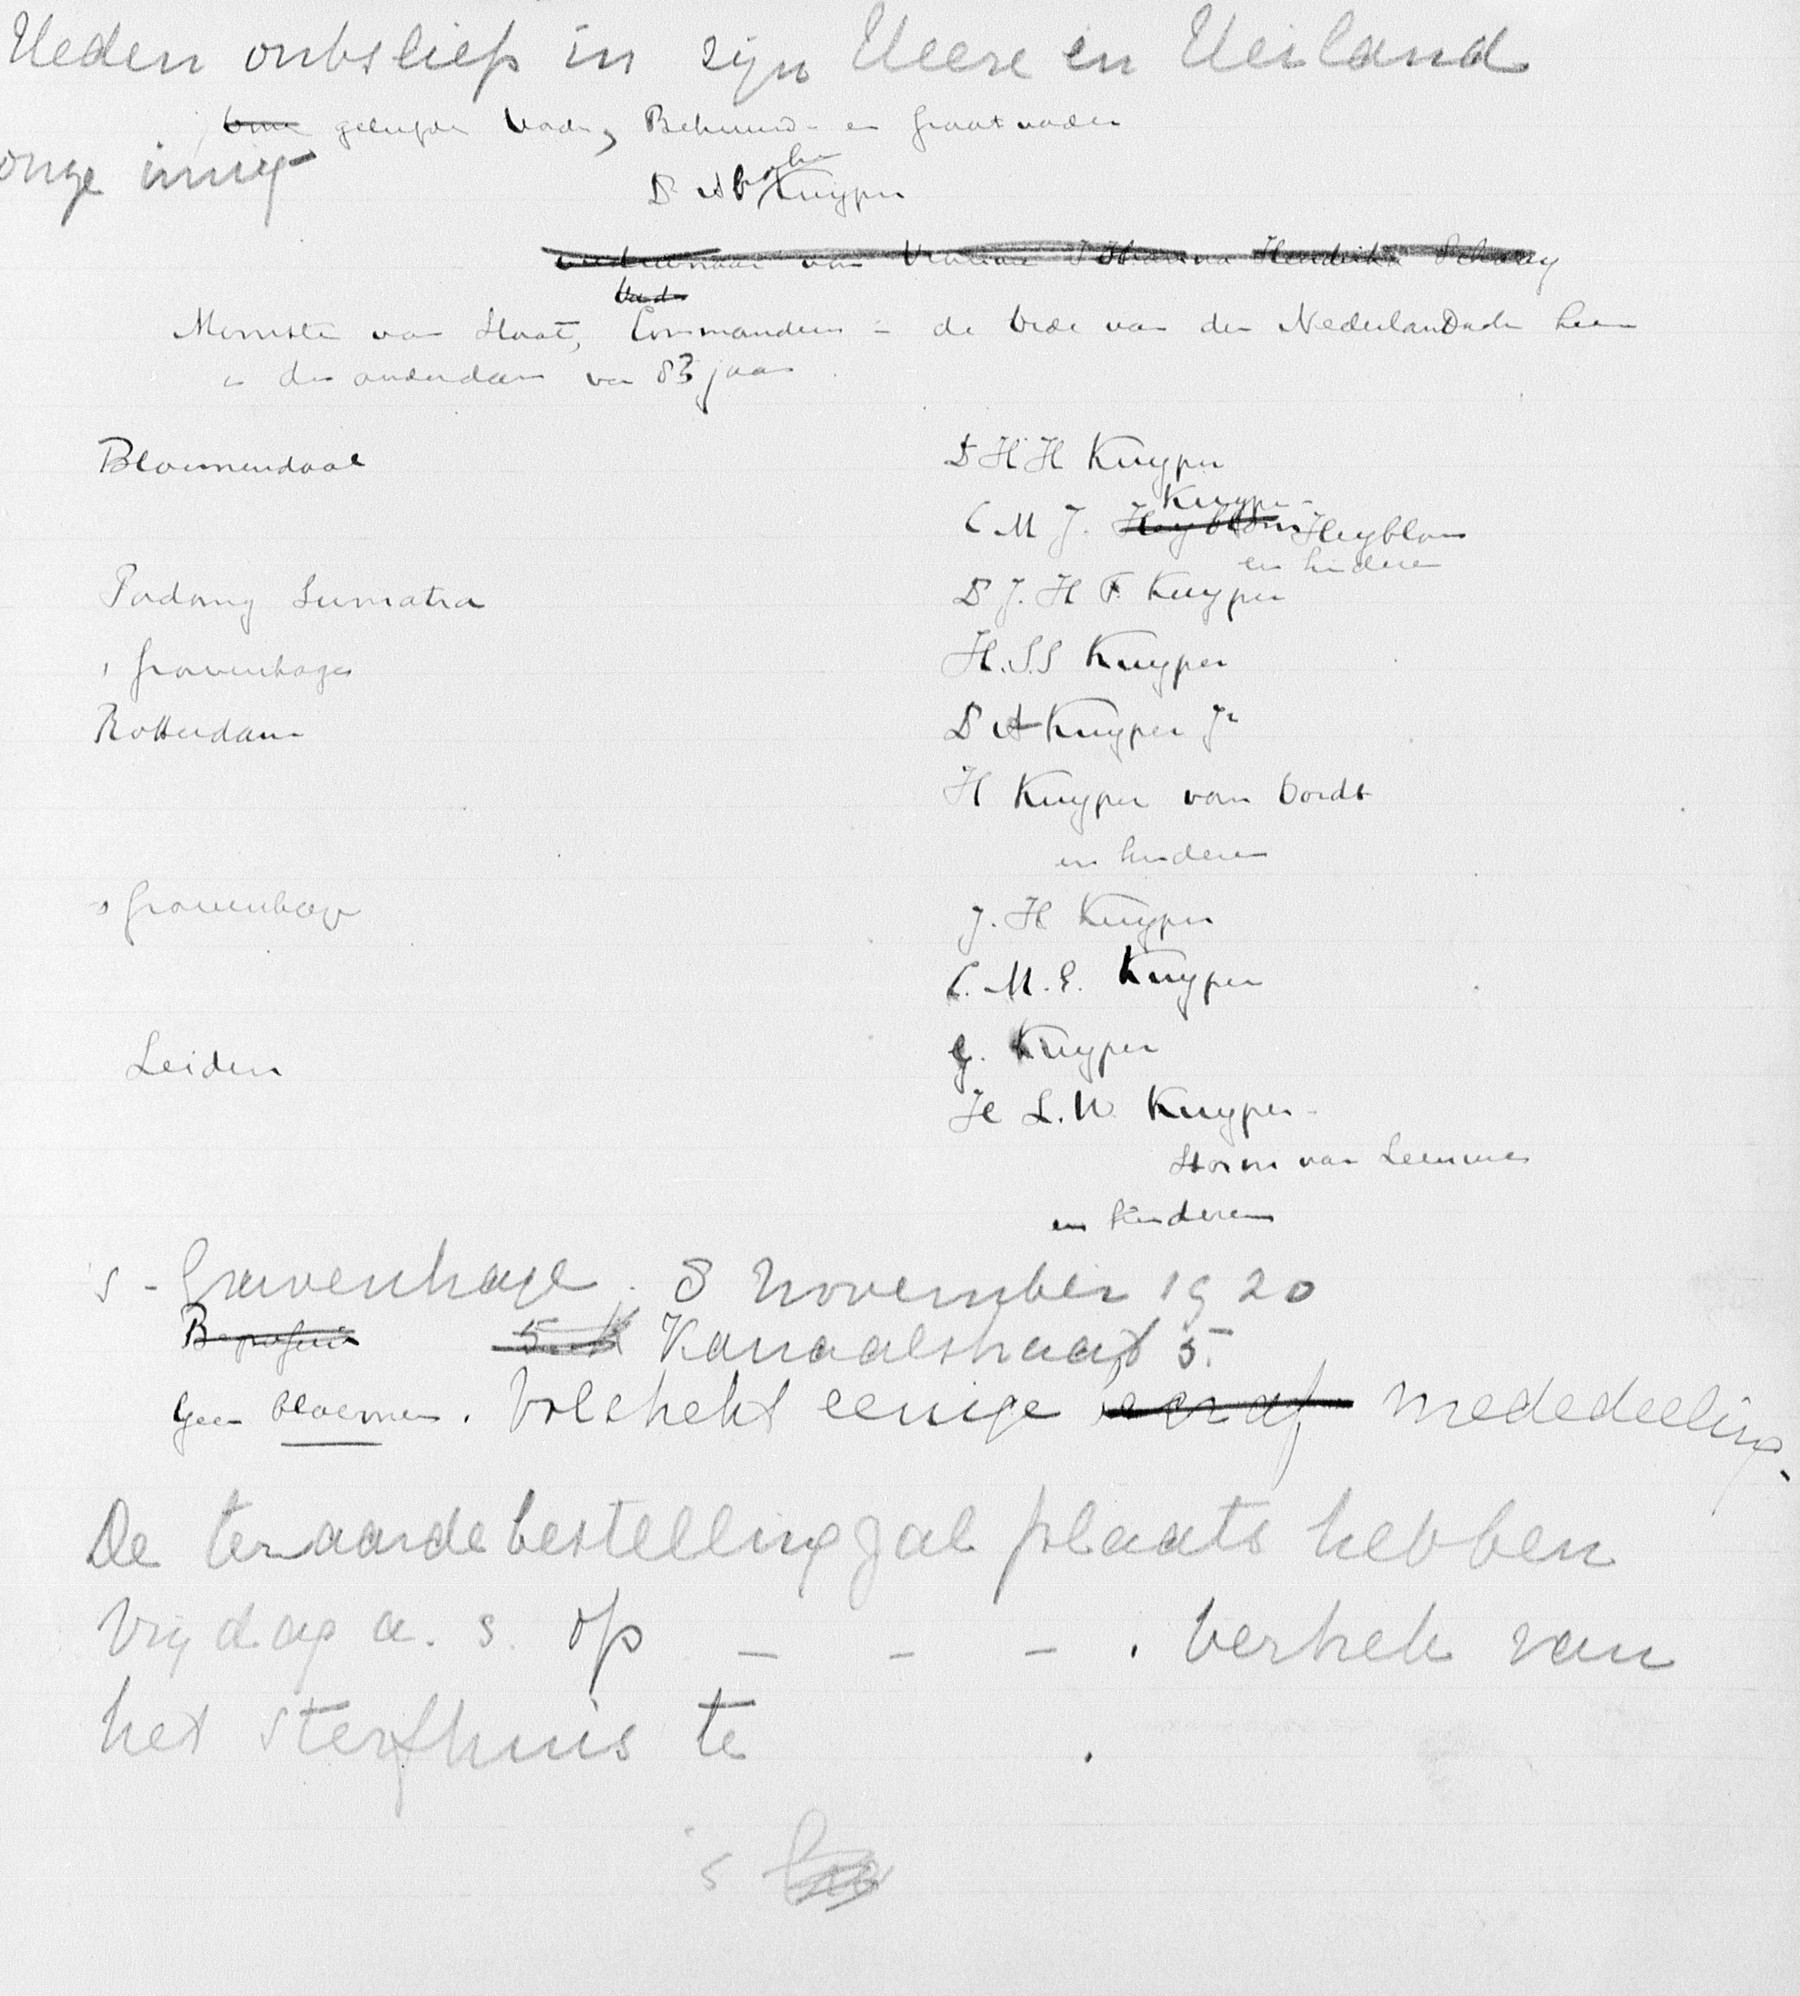 Heden ontsliep in zijn Heere en Heiland
onze innig geliefde Vader, Behuwd- en Grootvader
Dr Abraham Kuyper
weduwnaar van Vrouwe Johanna Hendrika Schaay
Minister van Staat, Commandeur in de Orde van den Nederlandsche Leeuw
in den ouderdom van 83 jaar
Bloemendaal Dr H H Kuyper
C M J. Heyblom Kuyper-Heyblom
en kinderen
Padang Sumatra Dr J. H F. Kuyper
's Gravenhage H.S.S Kuyper
Rotterdam Dr A Kuyper Jr
H Kuyper van Oordt
en kinderen
's Gravenhage J. H Kuyper
C. M. E. Kuyper
Leiden G. Kuyper
H L. W. Kuyper-
Storm van Leeuwen
en kinderen
's-Gravenhage. 8 November 1920
5 K Kanaalstraat 5.
Geen bloemen. Volstrekt eenige mededeeling.
De ter aarde bestelling zal plaats hebben
Vrijdag a. s. op _ _ _ . Vertrek van
het sterfhuis te .
's